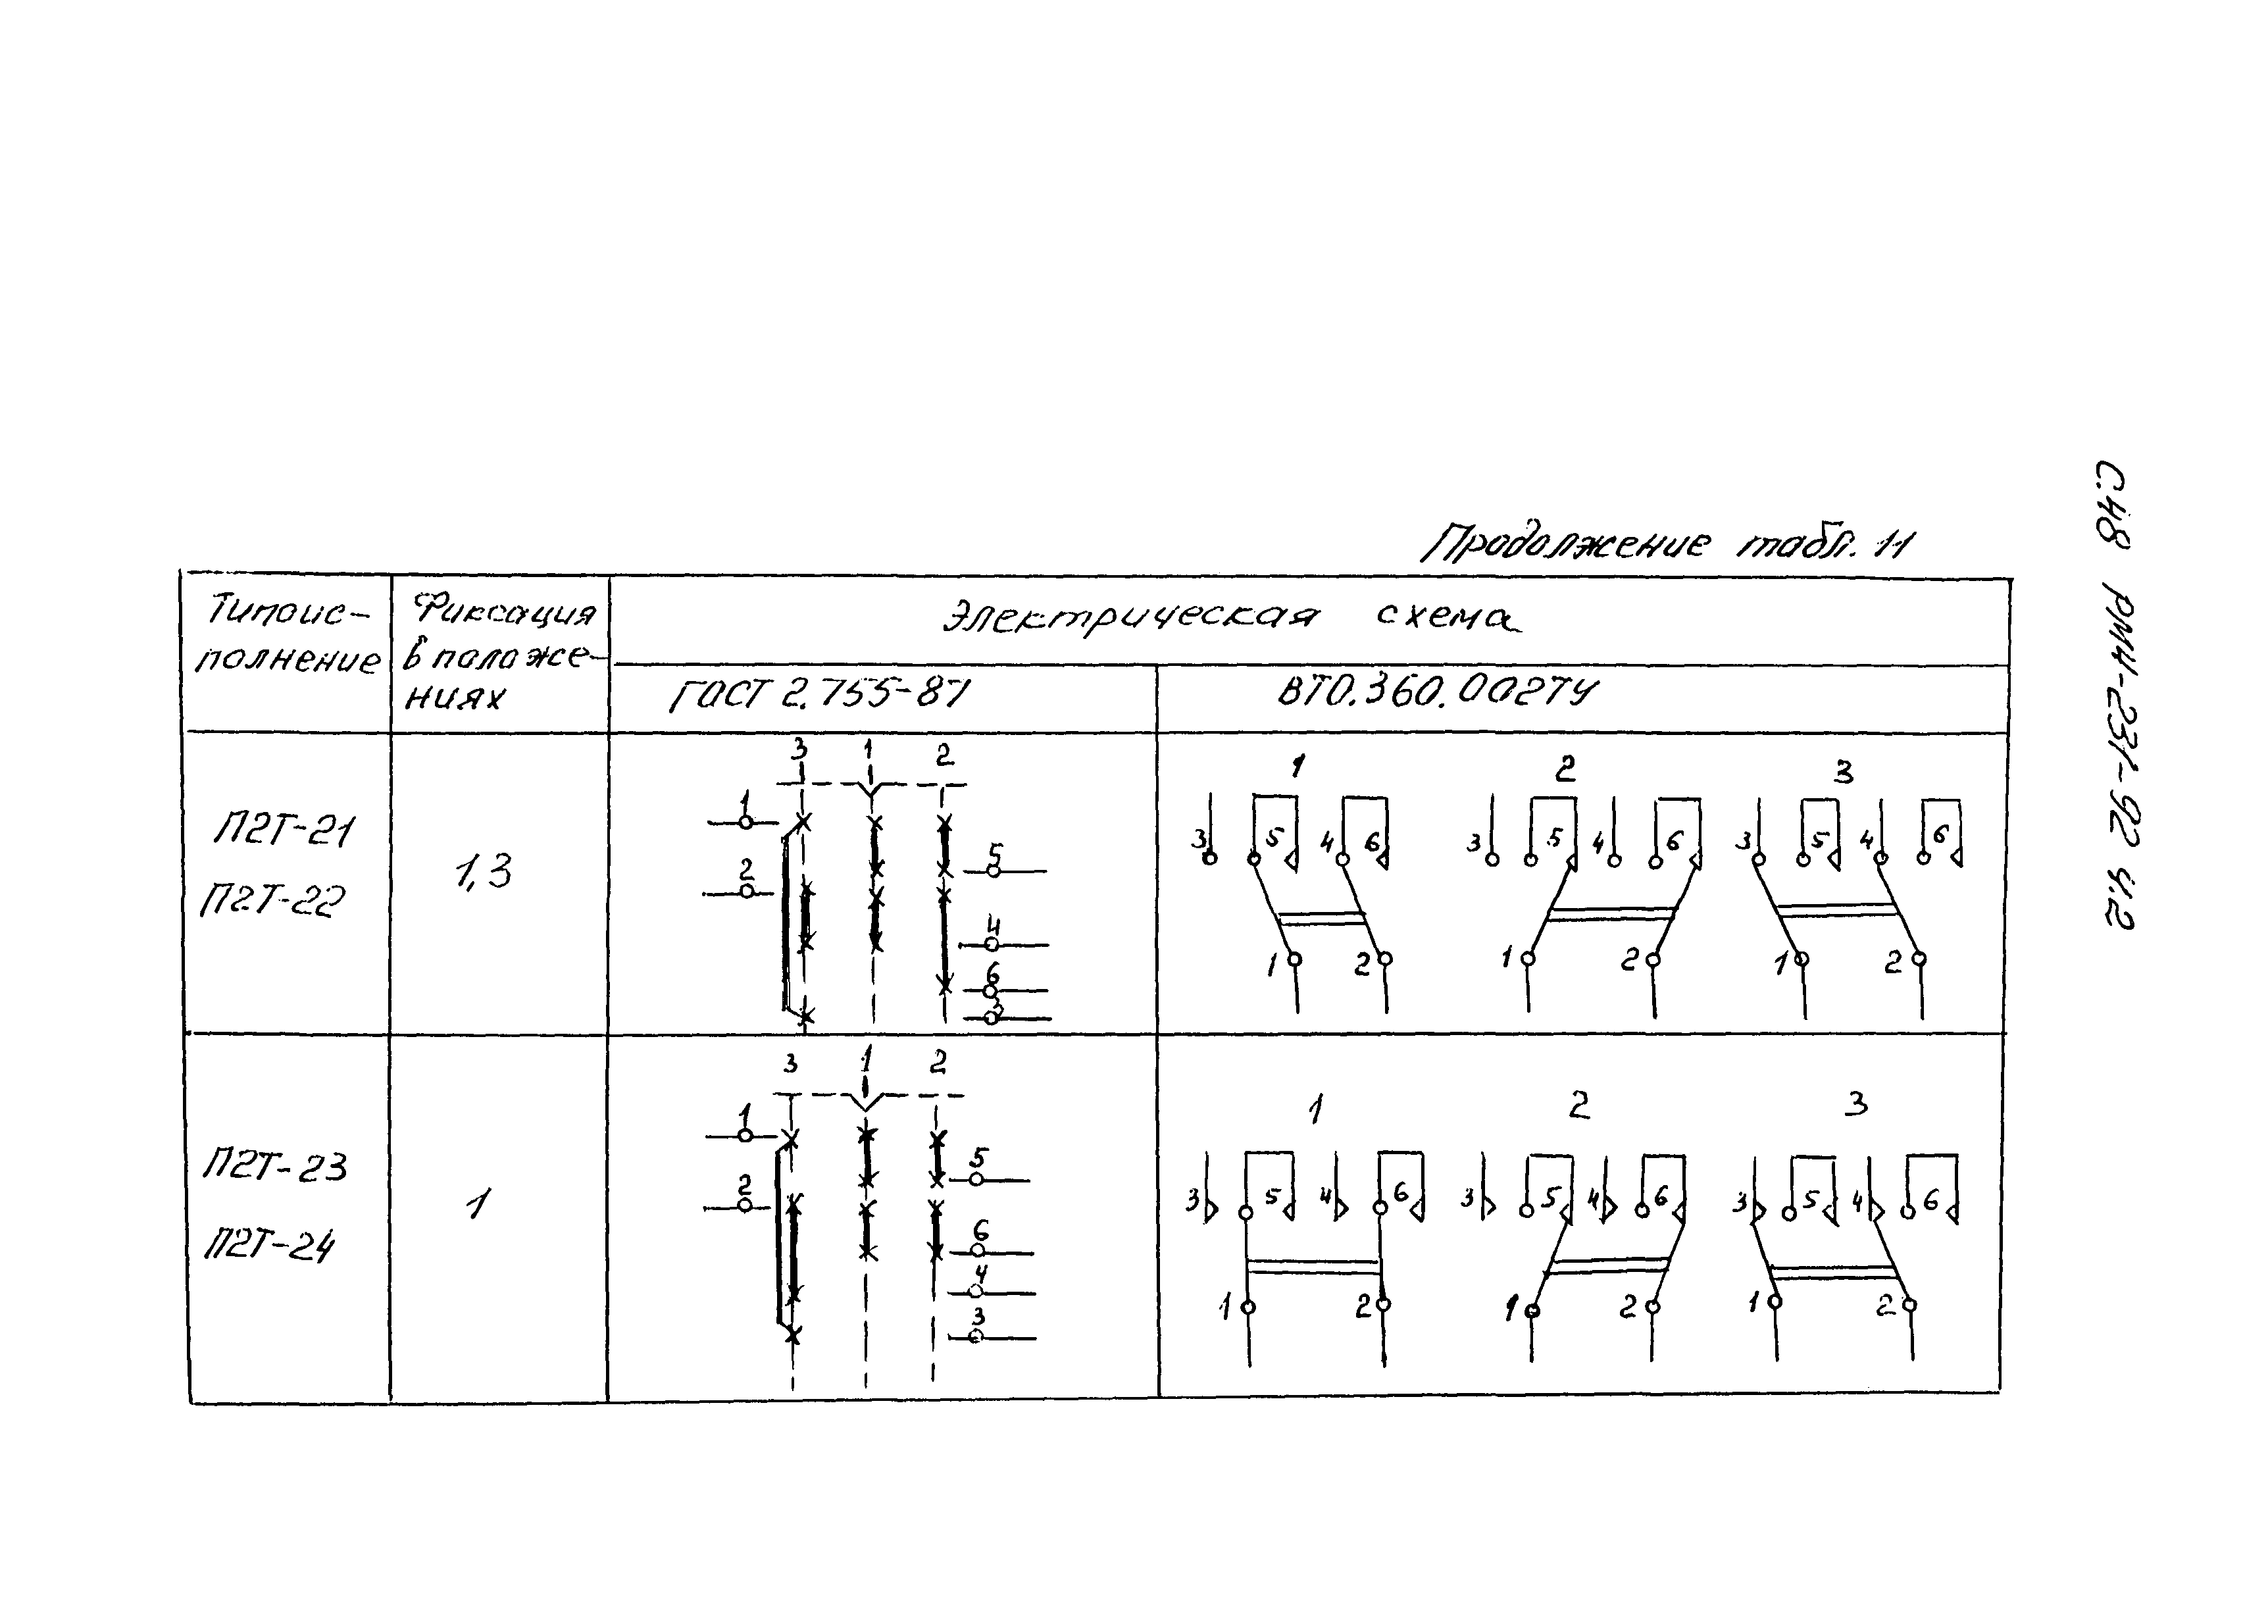 Продолжение табл. 11
С.48 РМ4-231-92 Ч.2
Типоис-
полнение
Фиксация
в положе-
ниях
Электрическая схема
ГОСТ 2.755-87
ВТО.360.002ТУ
П2Т-21
П2Т-22
1,3
3 1 2
1
2
5
4
6
3
1 2 3
3 5 4 6
3 5 4 6
3 5 4 6
1 2
1 2
1 2
П2Т-23
П2Т-24
1
3 1 2
1
2
5
6
4
3
1 2 3
3 5 4 6
3 5 4 6
3 5 4 6
1 2
1 2
1 2